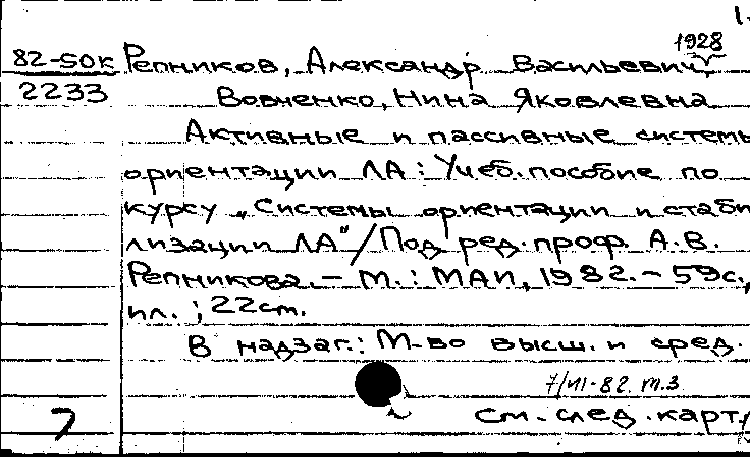 1.
1928
82-50к Репников, Александр Васильевич,
2233 Вовченко, Нина Яковлевна
Активные и пассивные системы
ориентации ЛА : Учеб. пособие по
курсу „Системы ориентации и стаби
лизации ЛА" / Под ред. проф. А.В.
Репникова. – М. : МАИ, 1982. – 59с.,
ил. ; 22см.
В надзаг.: М-во высш. и сред.
7/VI-82. т.3.
см. след. карт.